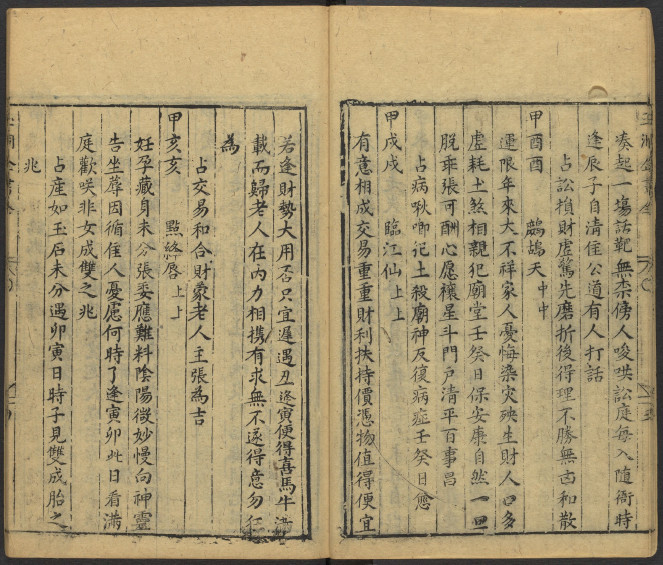 湊起一塲話靶無柰傍人唆哄訟庭每入隨衙時
逢辰子自清佳公道有人打話
占訟損財虛驚先磨折後得理不勝無卤和散
甲酉酉 鷓鴣天中中
運限年來大不祥家人憂悔染灾殃生財人口多
虛耗土煞相親犯廟堂壬癸日保安康自然一旦
脫乖張可酬心愿禳星斗門戶清平百事昌
占病啾唧祀土殺廟神反復病症壬癸日愈
甲戌戌 臨江仙上上
有意相成交易重重財利扶持價憑物值得便宜
若逢財勢大用否只宜遲遇丑逢寅便得喜馬牛滿
載而歸老人在內力相携有求無不遂得意勿狂
為
占交易和合財象老人王張為吉
甲亥亥 點絳唇上上
妊孕藏身未分張委應難料陰陽微妙慢向神靈
告坐蓐因循住人憂慮何時了逢寅卯此日看滿
庭歡咲非女成雙之兆
占產如玉石未分遇卯寅日時子見雙成胎之
兆